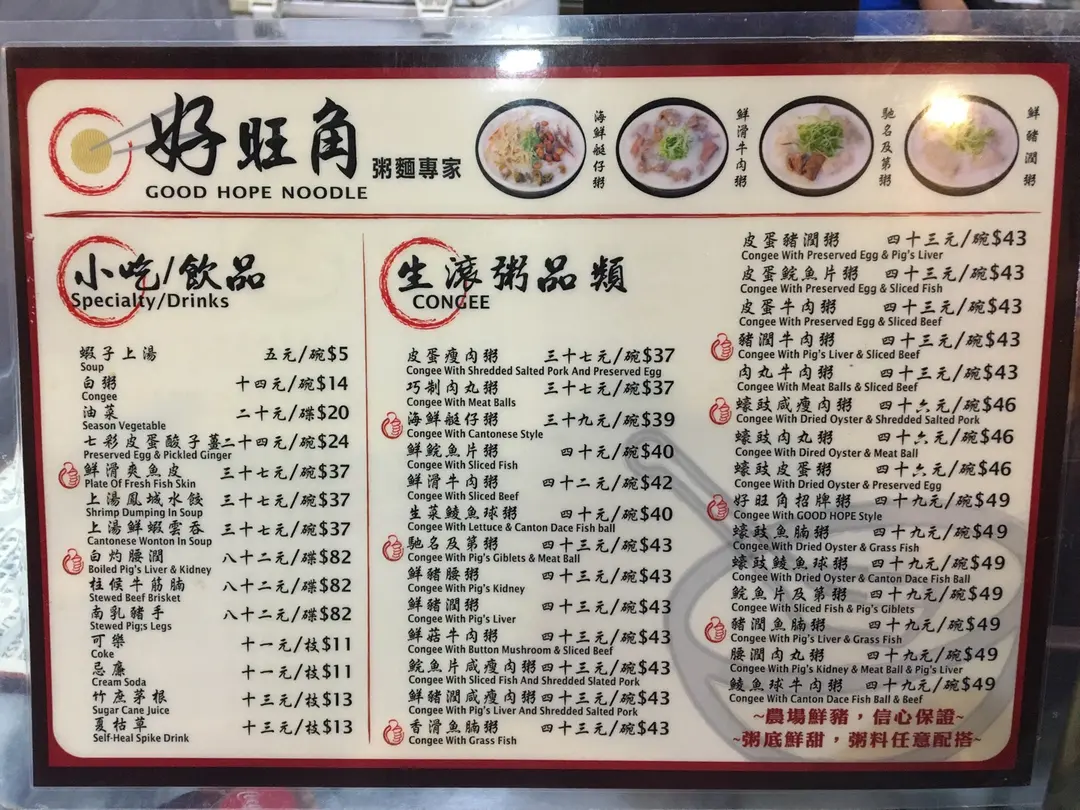 好旺角
粥麵專家
GOOD HOPE NOODLE
海鮮艇仔粥
鮮滑牛肉粥
馳名及第粥
鮮豬潤粥
小吃/飲品
Specialty/Drinks
蝦子上湯 五元/碗$5
Soup
白粥 十四元/碗$14
Congee
油菜 二十元/碟$20
Season Vegetable
七彩皮蛋酸子薑二十四元/碗$24
Preserved Egg & Pickled Ginger
鮮滑爽魚皮 三十七元/碗$37
Plate Of Fresh Fish Skin
上湯鳳城水餃 三十七元/碗$37
Shrimp Dumping In Soup
上湯鮮蝦雲吞 三十七元/碗$37
Cantonese Wonton In Soup
白灼腰潤 八十二元/碟$82
Boiled Pig's Liver & Kidney
柱候牛筋腩 八十二元/碟$82
Stewed Beef Brisket
南乳豬手 八十二元/碟$82
Stewed Pig;s Legs
可樂 十一元/枝$11
Coke
忌廉 十一元/枝$11
Cream Soda
竹蔗茅根 十三元/枝$13
Sugar Cane Juice
夏枯草 十三元/枝$13
Self-Heal Spike Drink
生滾粥品類
CONGEE
皮蛋瘦肉粥 三十七元/碗$37
Congee With Shredded Salted Pork And Preserved Egg
巧制肉丸粥 三十七元/碗$37
Congee With Meat Balls
海鮮艇仔粥 三十九元/碗$39
Congee With Cantonese Style
鮮鯇魚片粥 四十元/碗$40
Congee With Sliced Fish
鮮滑牛肉粥 四十二元/碗$42
Congee With Sliced Beef
生菜鯪魚球粥 四十元/碗$40
Congee With Lettuce & Canton Dace Fish ball
馳名及第粥 四十三元/碗$43
Congee With Pig's Giblets & Meat Ball
鮮豬腰粥 四十三元/碗$43
Congee With Pig's Kidney
鮮豬潤粥 四十三元/碗$43
Congee With Pig's Liver
鮮菇牛肉粥 四十三元/碗$43
Congee With Button Mushroom & Sliced Beef
鯇魚片咸瘦肉粥四十三元/碗$43
Congee With Sliced Fish And Shredded Slated Pork
鮮豬潤咸瘦肉粥四十三元/碗$43
Congee With Pig's Liver And Shredded Salted Pork
香滑魚腩粥 四十三元/碗$43
Congee With Grass Fish
皮蛋豬潤粥 四十三元/碗$43
Congee With Preserved Egg & Pig's Liver
皮蛋鯇魚片粥 四十三元/碗$43
Congee With Preserved Egg & Sliced Fish
皮蛋牛肉粥 四十三元/碗$43
Congee With Preserved Egg & Sliced Beef
豬潤牛肉粥 四十三元/碗$43
Congee With Pig's Liver & Sliced Beef
肉丸牛肉粥 四十三元/碗$43
Congee With Meat Balls & Sliced Beef
蠔豉咸瘦肉粥 四十六元/碗$46
Congee With Dried Oyster & Shredded Salted Pork
蠔豉肉丸粥 四十六元/碗$46
Congee With Dired Oyster & Meat Ball
蠔豉皮蛋粥 四十六元/碗$46
Congee With Dried Oyster & Preserved Egg
好旺角招牌粥 四十九元/碗$49
Congee With GOOD HOPE Style
蠔豉魚腩粥 四十九元/碗$49
Congee With Dried Oyster & Grass Fish
蠔豉鯪魚球粥 四十九元/碗$49
Congee With Dried Oyster & Canton Dace Fish Ball
鯇魚片及第粥 四十九元/碗$49
Congee With Sliced Fish & Pig's Giblets
豬潤魚腩粥 四十九元/碗$49
Congee With Pig's Liver & Grass Fish
腰潤肉丸粥 四十九元/碗$49
Congee With Pig's Kidney & Meat Ball & Pig's Liver
鯪魚球牛肉粥 四十九元/碗$49
Congee With Canton Dace Fish Ball & Beef
~農場鮮豬，信心保證~
~粥底鮮甜，粥料任意配搭~